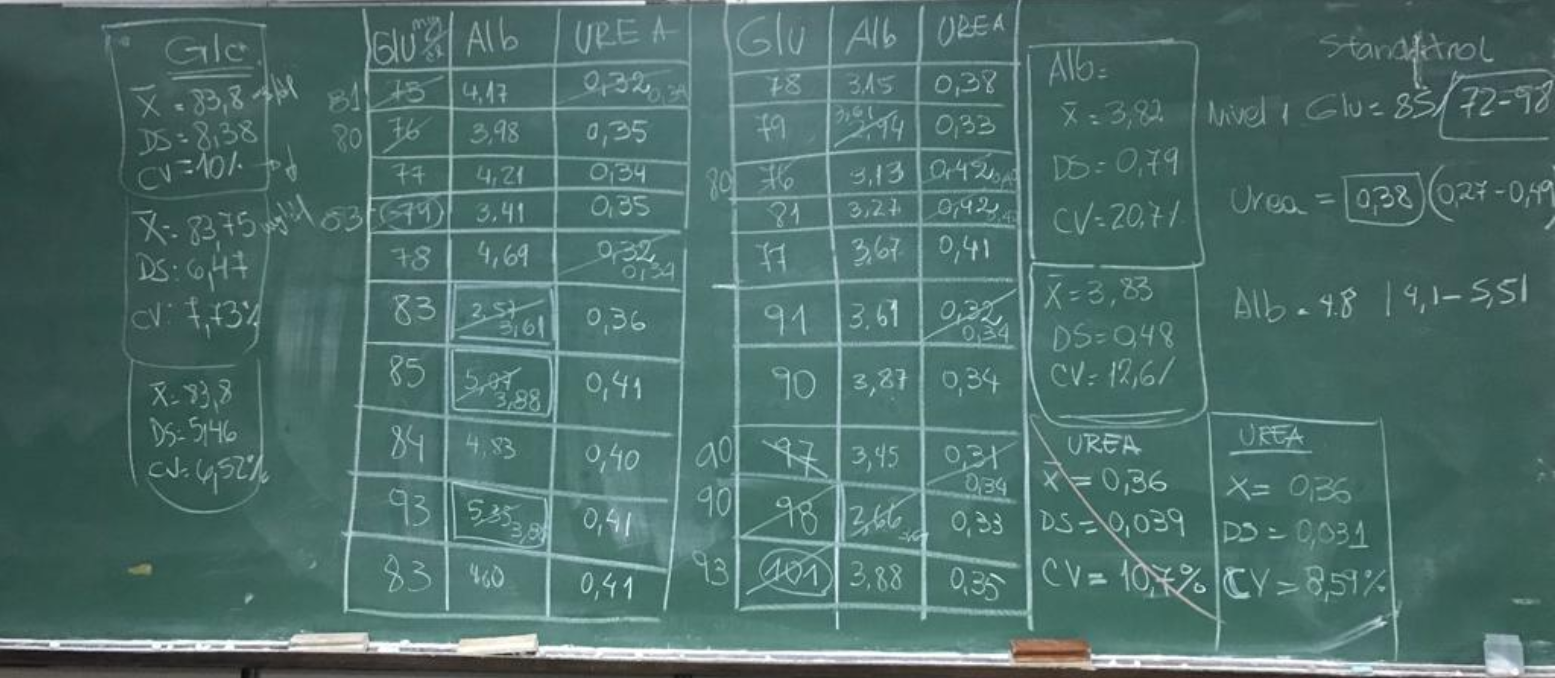 Glc
X̄ = 83,8
DS = 8,38
CV = 10%
X̄ = 83,75 mg/dl
DS: 6,47
CV: 7,73%
X̄ = 83,8
DS: 5,46
CV = 6,52%
Glu Alb UREA
81 75 4,17 0,32
80 76 3,98 0,35
77 4,21 0,34
3.41 0,35
78 4,69 0,32 0,34
83 2,57 3,61 0,36
85 3,88 0,41
84 4,83 0,40
93 5,35 0,41
83 4,60 0,41
Glu Alb UREA
78 3,15 0,38
79 2,94 0,33
80 76 3,13 0,42
81 3,27 0,42
77 3,67 0,41
91 3.61 0,32 0,34
90 3,87 0,34
90 97 3,45 0,31 0,34
90 98 2,66 0,33
93 101 3,88 0,35
Alb=
X̄ = 3,82
DS = 0,79
CV = 20,7%
X̄ = 3,83
DS = 0,48
CV = 12,6%
UREA
X̄ = 0,36
DS = 0,039
CV = 10,7%
UREA
X = 0,36
DS = 0,031
CV = 8,59%
Nivel 1 Glu = 85 / 72-98
Urea = 0,38 (0,27-0,49)
Alb = 4.8 | 4,1-5,51